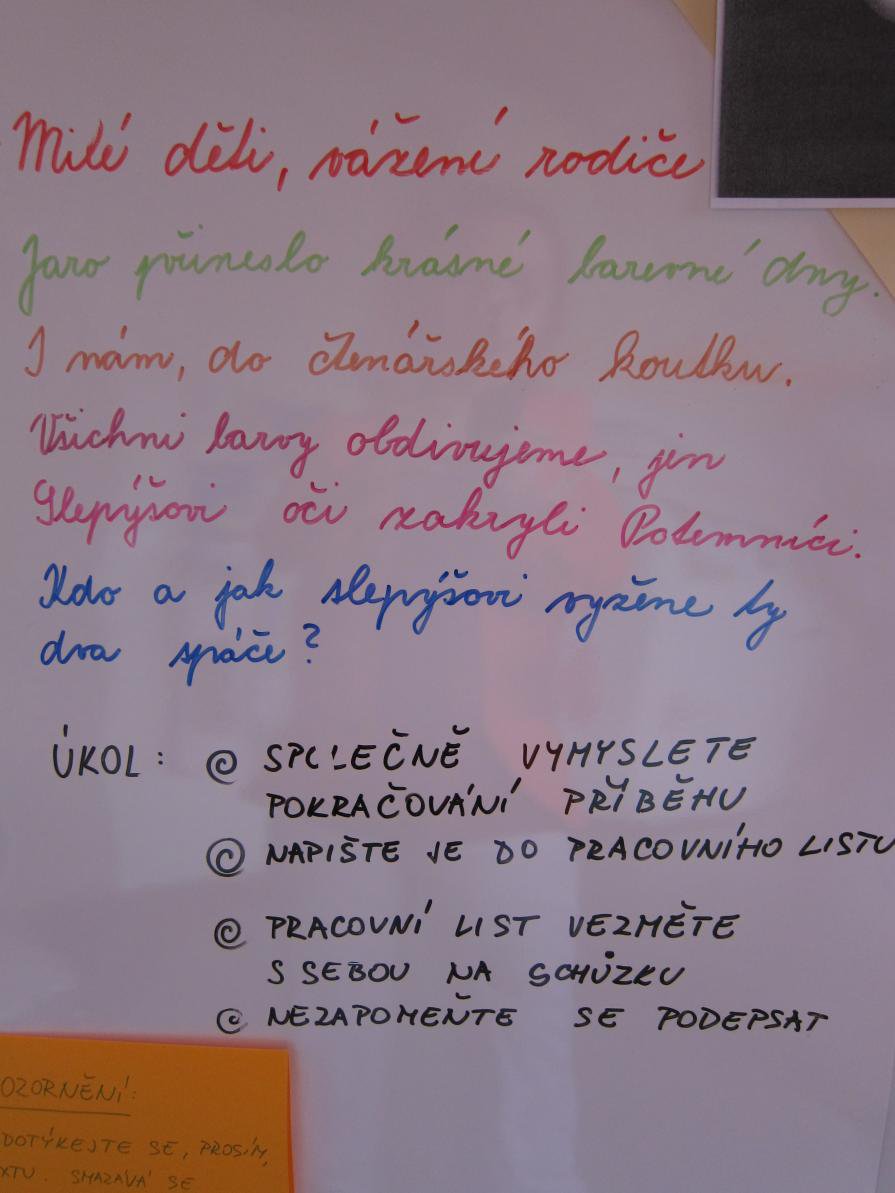 Milé děti, vážení rodiče
Jaro přineslo krásné barevné dny.
I nám, do čtenářského koutku.
Všichni barvy obdivujeme, jen
Slepýšovi oči zakryli Potemníci.
Kdo a jak slepýšovi vyžene ty
dva spáče?
ÚKOL: SPOLEČNĚ VYMYSLETE
POKRAČOVÁNÍ PŘÍBĚHU
NAPIŠTE JE DO PRACOVNÍHO LISTU
PRACOVNÍ LIST VEZMĚTE
S SEBOU NA SCHŮZKU
NEZAPOMEŇTE SE PODEPSAT
OZORNĚNÍ:
DOTÝKEJTE SE, PROSÍM,
XTU. SMAZÁVÁ SE